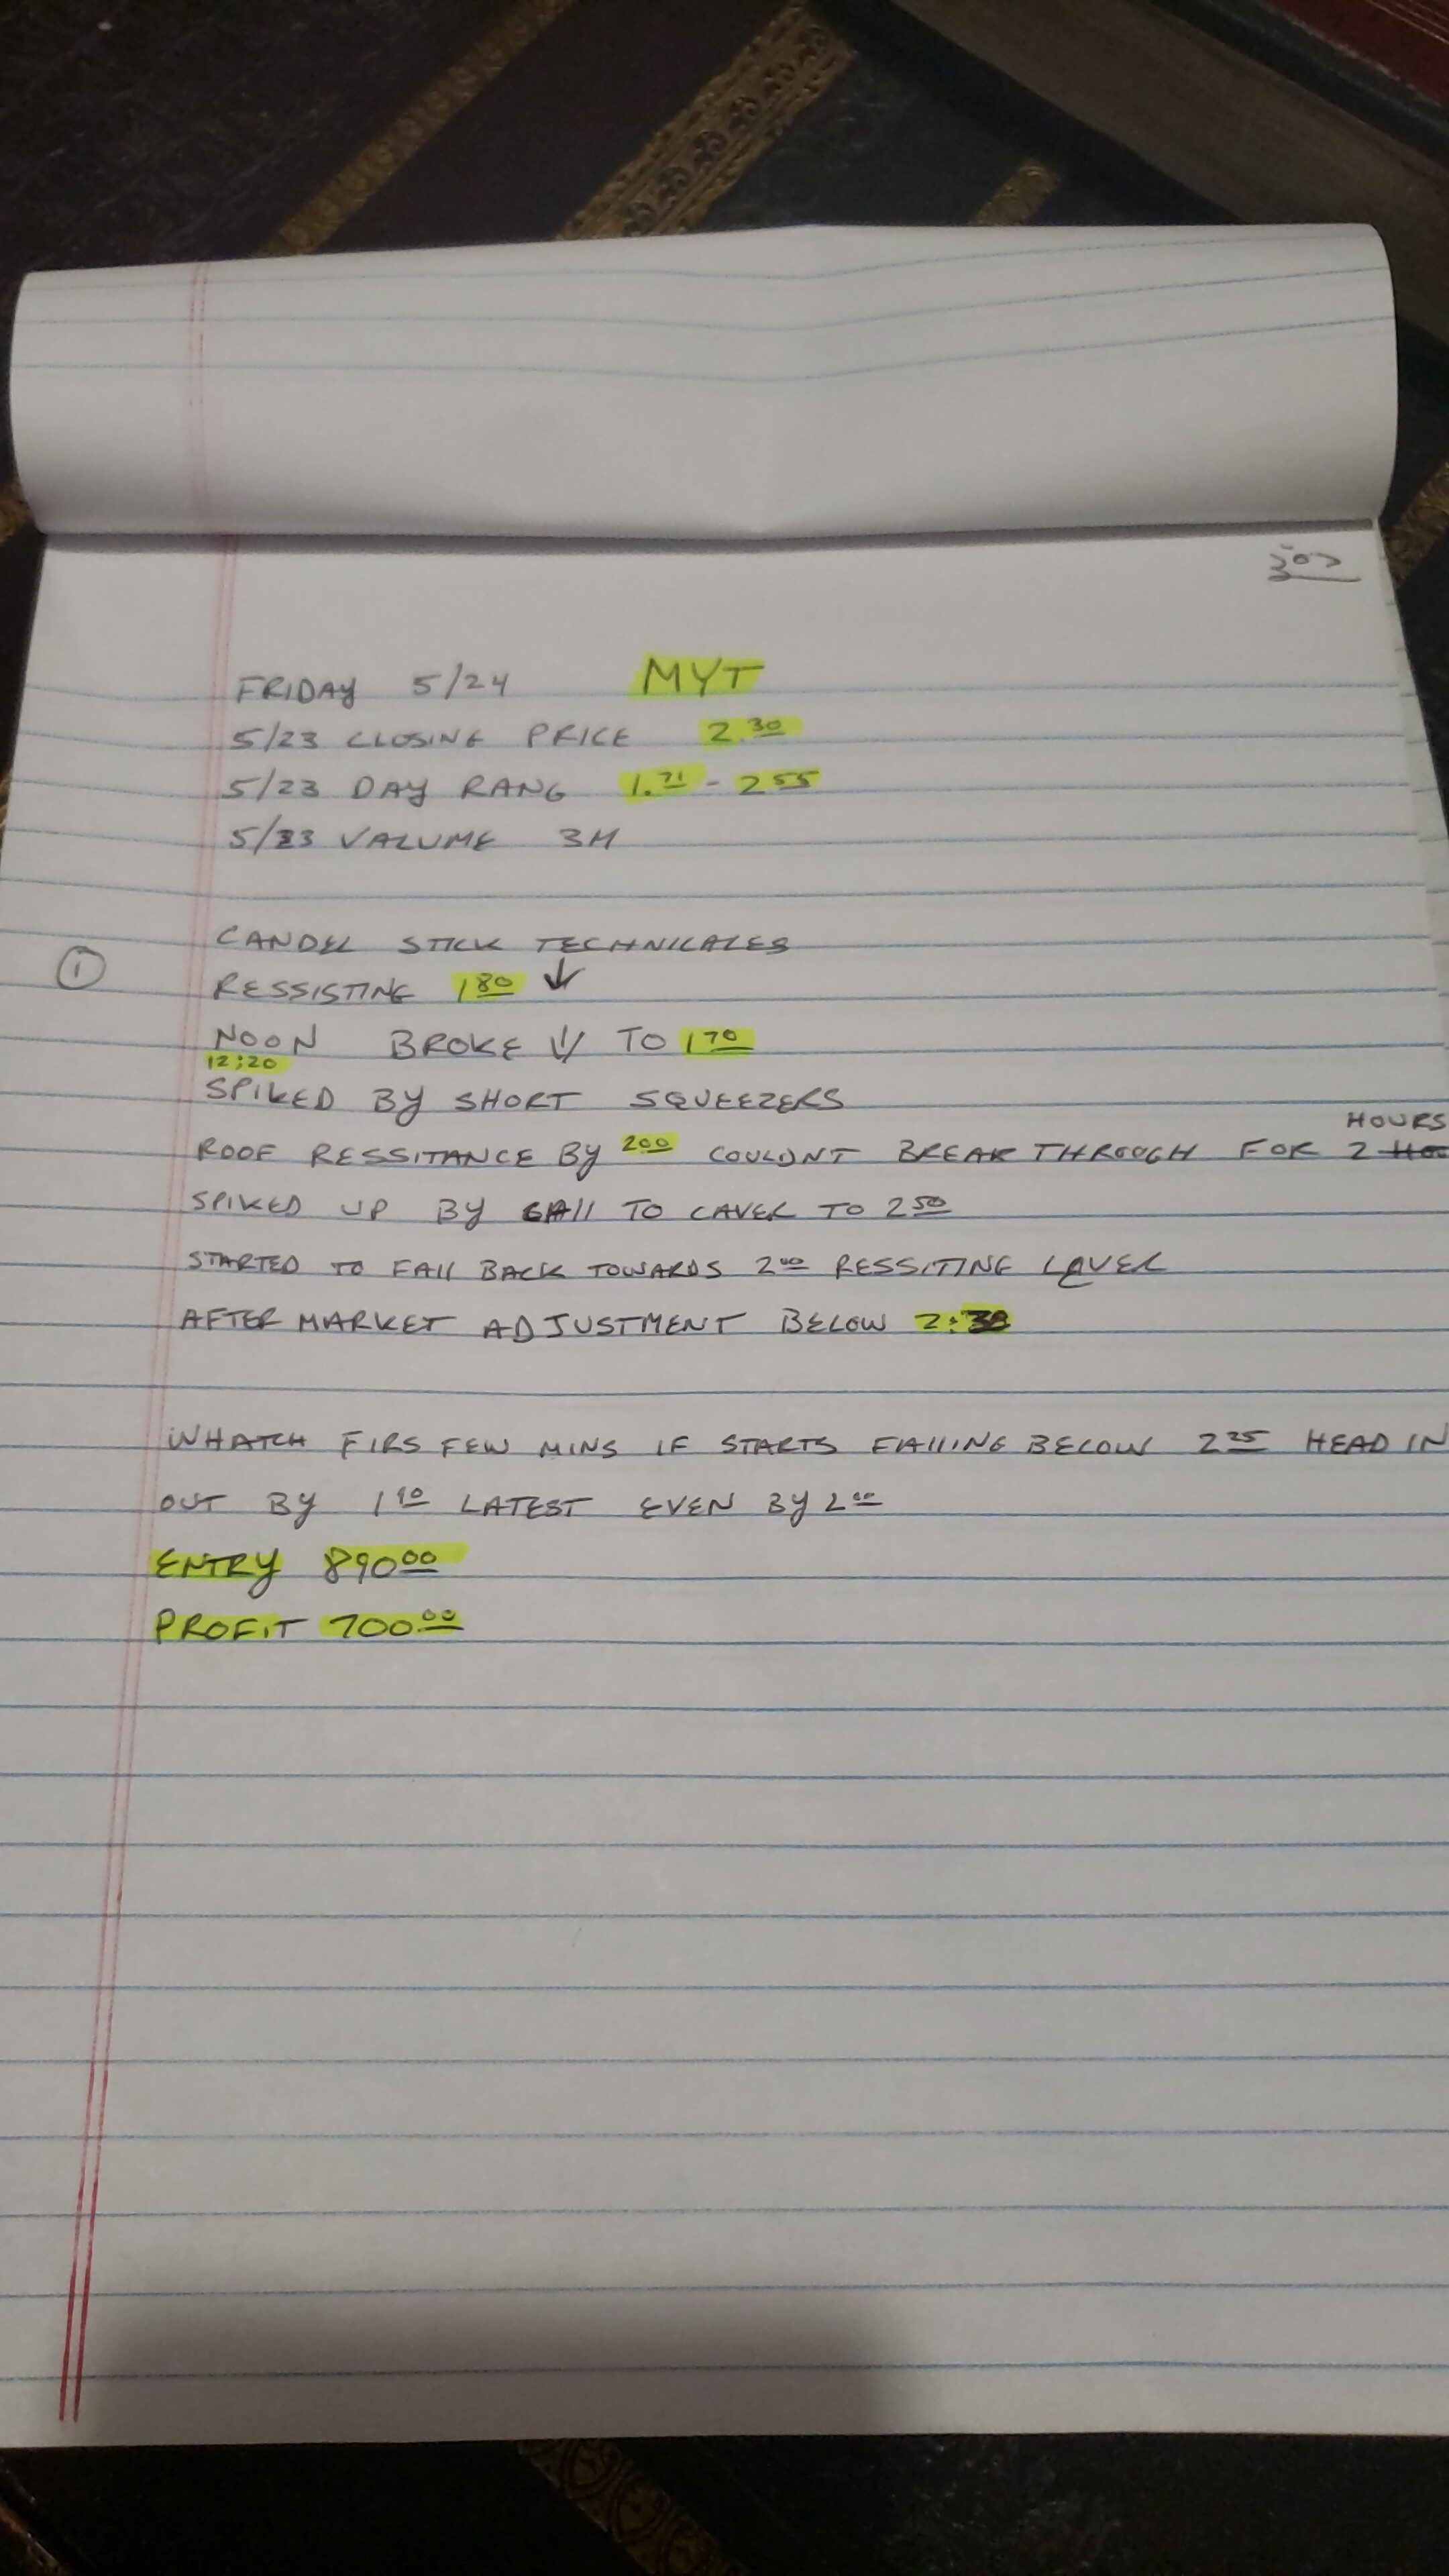 FRIDAY 5/24 MYT
5/23 CLOSING PRICE 2.30
5/23 DAY RANG 1.71 - 255
5/23 VALUME 3M
CANDEL STICK TECHNICALES
① RESSISTING 180 ↓
NOON BROKE ↓ TO 170
12:20
SPIKED BY SHORT SQUEEZERS
ROOF RESSITANCE BY 200 COULDNT BREAK THROUGH FOR 2 HOURS
SPIKED UP BY CAll TO CAVER TO 250
STARTED TO FAll BACK TOWARDS 200 RESSITING LAVER
AFTER MARKET ADJUSTMENT BELOW 2.30
WHATCH FIRS FEW MINS IF STARTS FAllING BELOW 225 HEAD IN
OUT BY 190 LATEST EVEN BY 200
ENTRY 89000
PROFIT 700.00